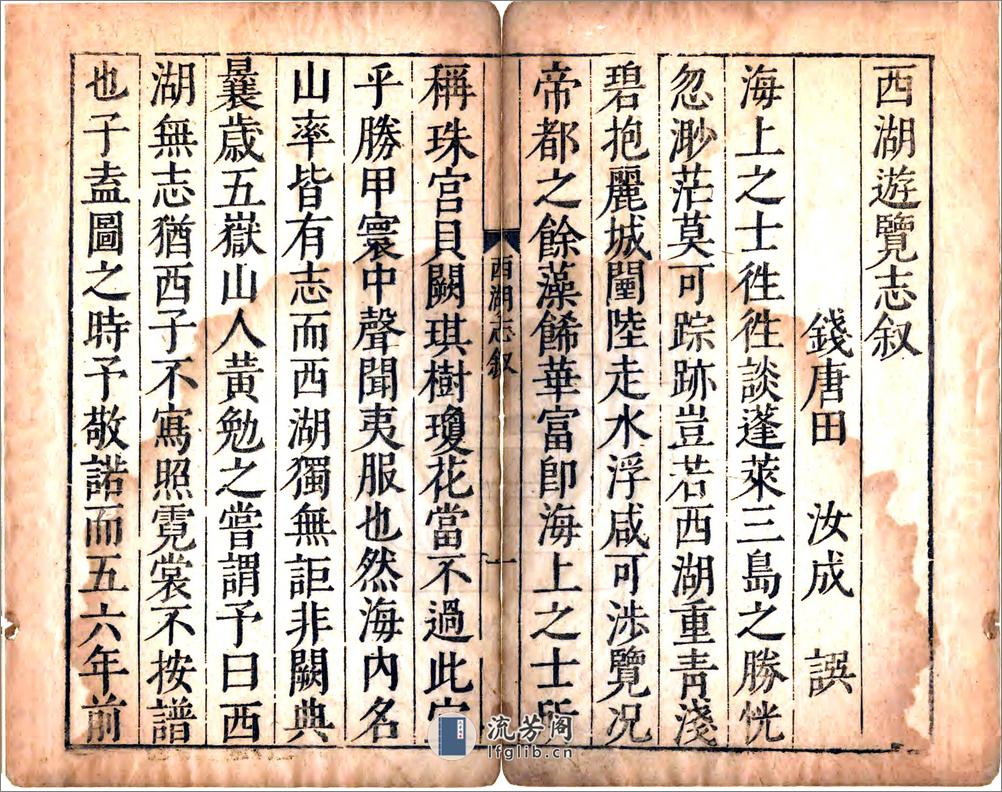 西湖遊覽志叙
錢唐田 汝成 譔
海上之士徃徃談蓬萊三島之勝恍
忽渺茫莫可踪跡豈若西湖重青淺
碧抱麗城闉陸走水浮咸可涉覽况
帝都之餘藻餙華富卽海上之士所
西湖志叙 一
稱珠宮貝闕琪樹瓊花當不過此
乎勝甲寰中聲聞夷服也然海内名
山率皆有志而西湖獨無詎非闕典
曩歲五嶽山人黃勉之嘗謂予曰西
湖無志猶西子不寫照霓裳不按譜
也子盍圖之時予敬諾而五六年前
流芳阁
lfglib.cn